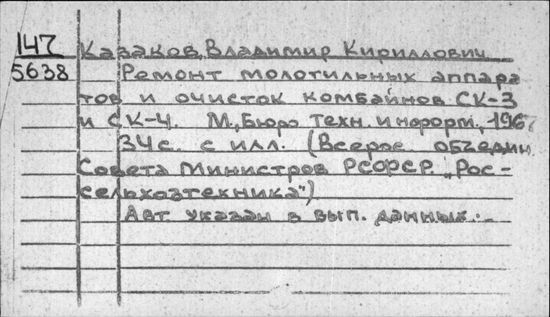 147 Казаков, Владимир Кириллович
5638 Ремонт молотильных аппара
тов и очисток комбайнов СК-3
и СК-4. М., Бюро техн. информ., 1967
34с. с илл. (Всерос. объедин.
Совета Министров РСФСР. „Рос-
сельхозтехника")
Авт указан в вып. данных.